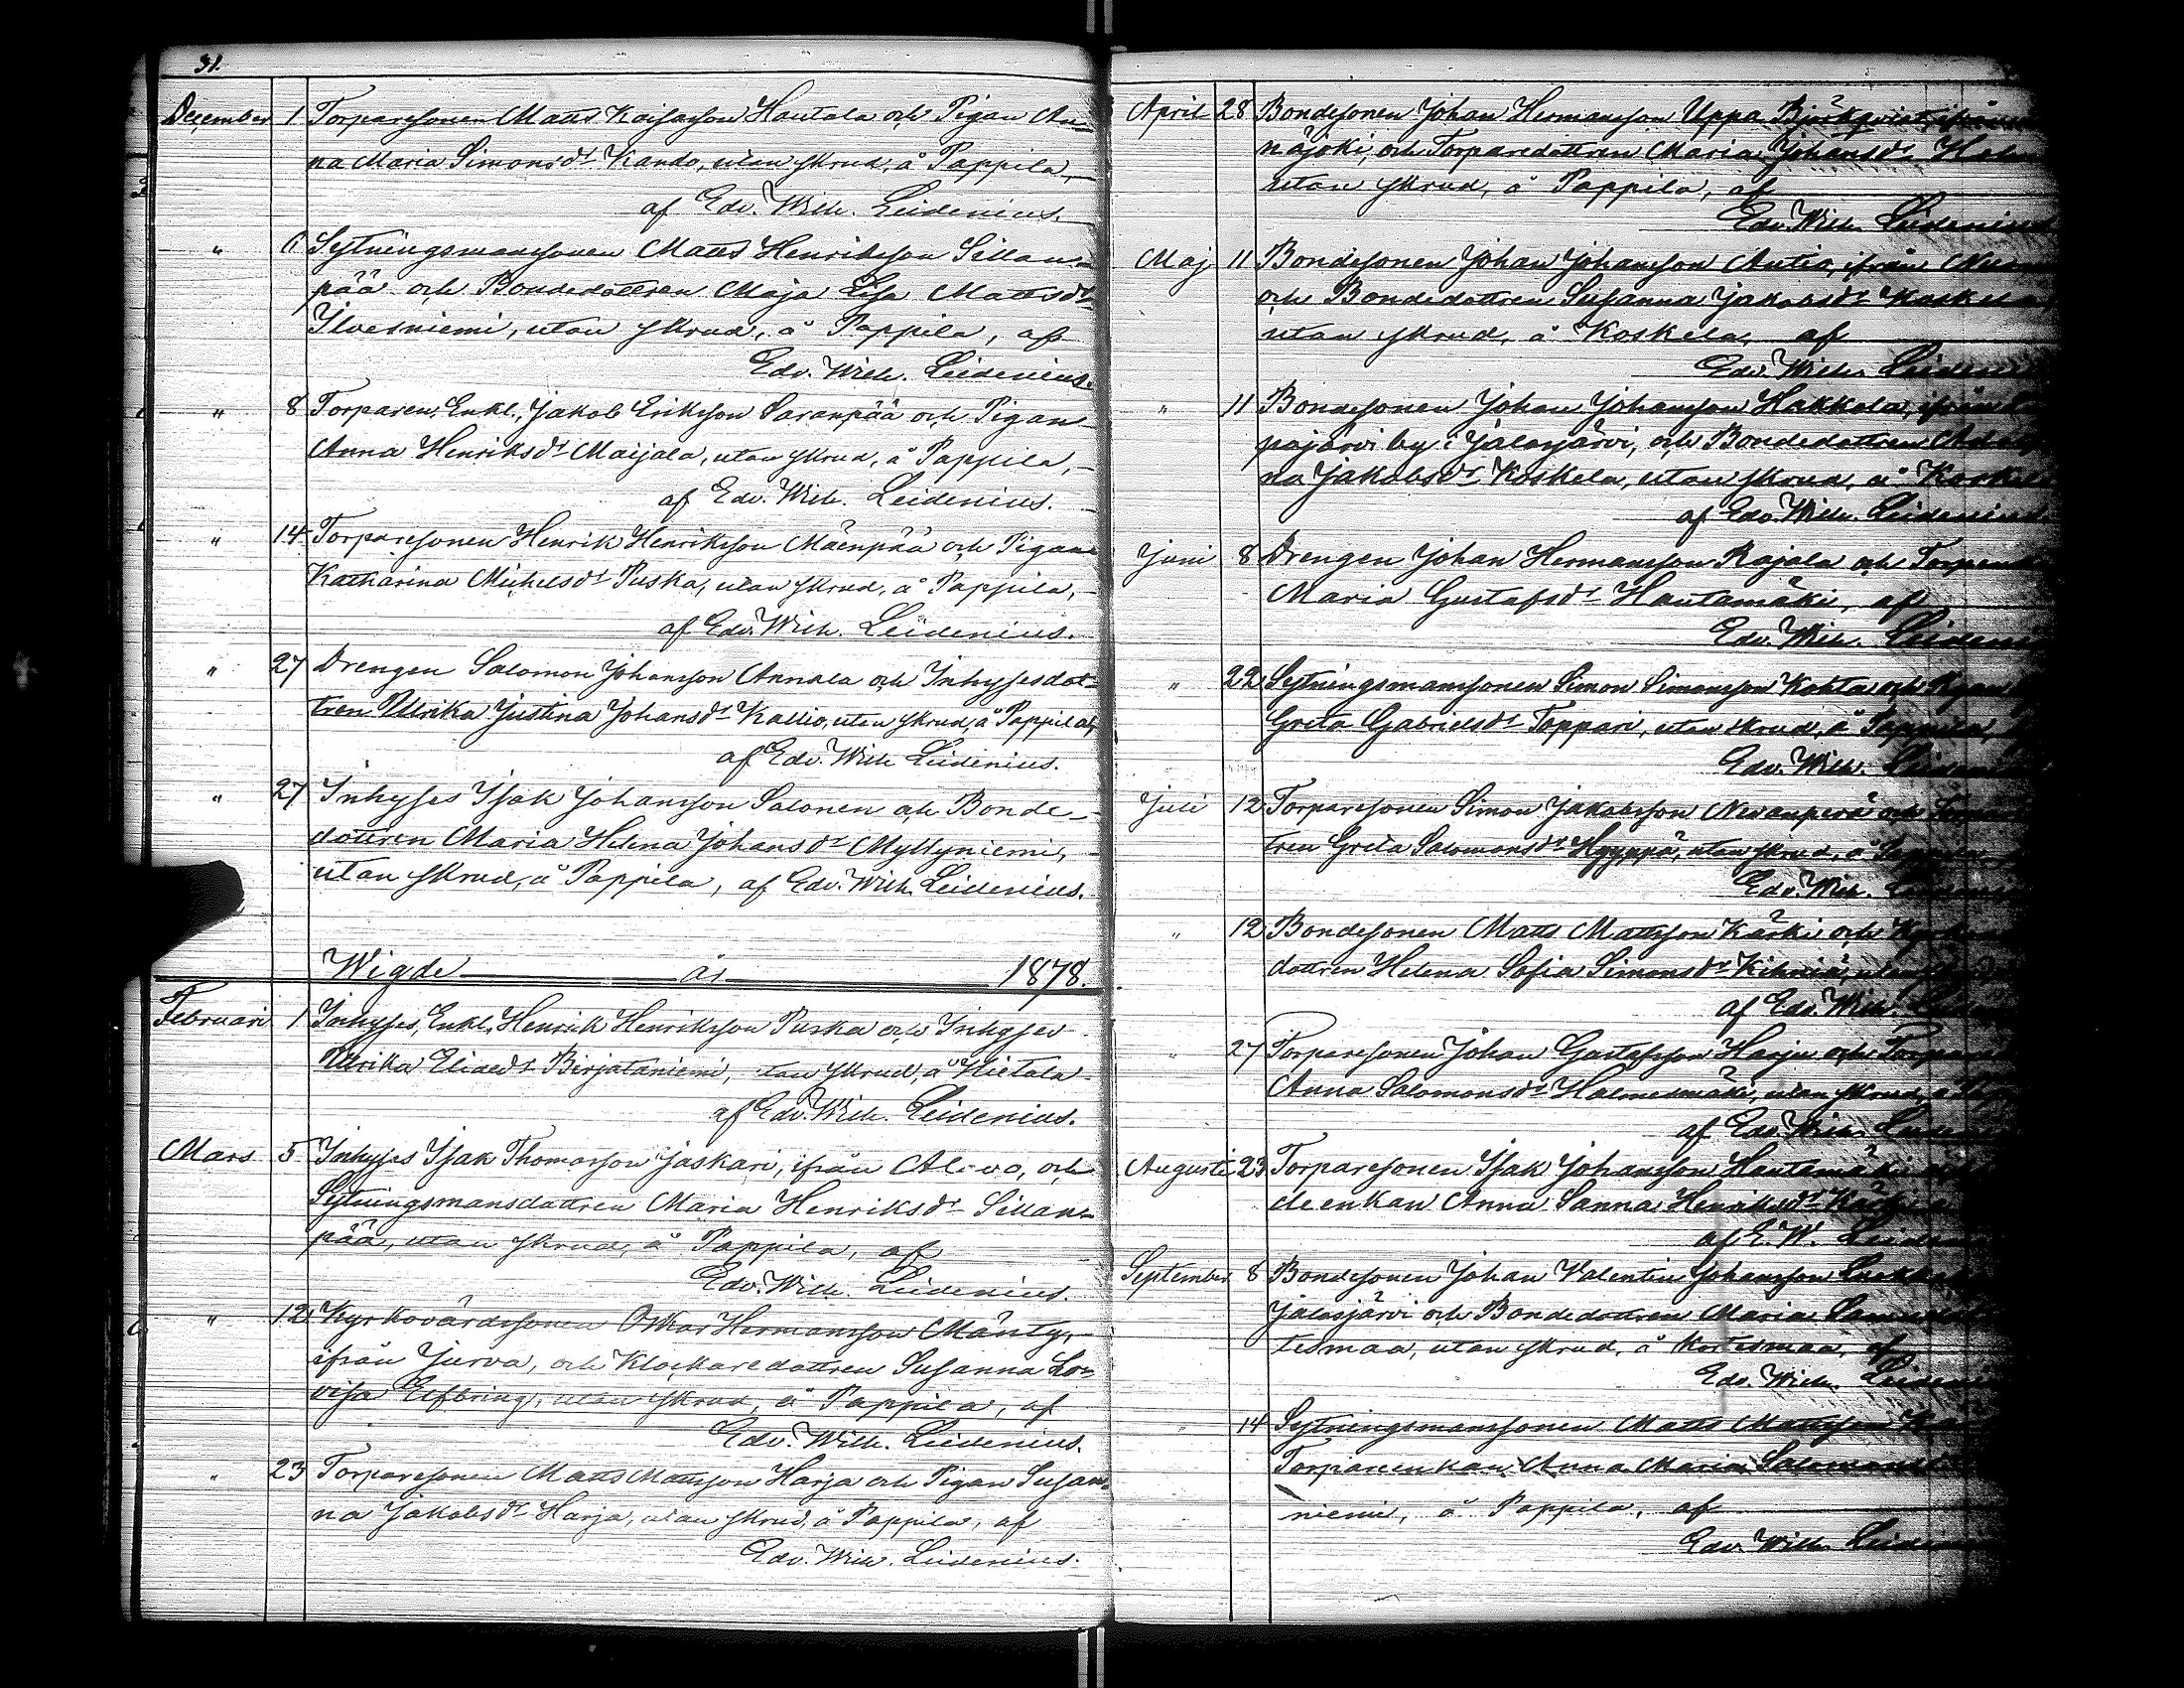 31.
December 1 Torparesonen Matts Kaisasson Hautala och Pigan An-
na Maria Simonsdr Kando, utan skrud, å Pappila,
af Edv. Wilh. Leidenius.
" 6 Sytningsmanssonen Matts Henriksson Sillan-
pää och Bondedottren Maja Lisa Mattsdr
Ilvesniemi, utan skrud, å Pappila, af
Edv. Wilh. Leidenius.
" 8 Torparen, Enkl., Jakob Eriksson Saranpää och Pigan
Anna Henriksdr Maijala, utan skrud, å Pappila,
af Edv. Wilh. Leidenius.
" 14 Torparesonen Henrik Henriksson Mäenpää och Pigan
Katharina Michelsdr Puska, utan skrud, å Pappila,
af Edv. Wilh. Leidenius.
" 27 Drengen Salomon Johansson Annala och Inhysesdot-
tren Ulrika Justina Johansdr Kallio, utan skrud, å Pappila,
af Edv. Wilh Leidenius.
" 27 Inhyses Isak Johansson Salonen och Bonde-
dottren Maria Helena Johansdr Myllyniemi,
utan skrud, å Pappila, af Edv. Wilh. Leidenius.
Wigde år 1878.
Februari 1 Inhyses, Enkl., Henrik Henriksson Puska och Inhyses
Ulrika Eliaedr Birjataniemi, utan skrud, å Hietala
af Edv. Wilh. Leidenius.
Mars 5 Inhyses Isak Thomasson Jaskari, ifrån och
Sytningsmansdottren Maria Henriksdr Sillan-
pää, utan skrud, å Pappila, af
Edv. Wilh. Leidenius.
" 12 Kyrkovärdssonen Oskar Hermansson Mänty,
ifrån Jurva, och Klockaredottren Susanna Lo-
visa Elfbring, utan skrud, å Pappila, af
Edv. Wilh. Leidenius.
" 23 Torparesonen Matts Mattsson Harja och Pigan Susan-
na Jakobsdr Harja, utan skrud, å Pappila, af
Edv. Wilh. Leidenius.
April 28 Bondesonen Johan Hermansson Uppa Björkqvist, ifrån
näjoki, och Torparedottren Maria Johansdr
utan skrud, å Pappila, af
Edv. Wilh. Leidenius
Maj 11 Bondesonen Johan Johansson Antio, ifrån
och Bondedottren Susanna Jakobsdr Koskela,
utan skrud, å Koskela, af
Edv. Wilh. Leiden
" 11 Bondesonen Johan Johansson Hakkola, ifrån
pajärvi by i Jalasjärvi, och Bondedottren
na Jakobsdr Koskela, utan skrud, å Koskel
af Edv. Wilh. Leidenius
Juni 8 Drengen Johan Hermansson Rajala och
Maria Gustafsdr Hautamäki, af
Edv. Wilh. Leiden
" 22 Sytningsmanssonen Simon Simonsson Kohta och Pigan
Greta Gabrielsdr Toppari, utan skrud, å Pappila,
Edv. Wilh.
Juli 12 Torparesonen Simon Jakobsson Nevanperä och
tren Greta Salomonsdr Hyyppä, utan skrud, å
Edv. Wilh.
" 12 Bondesonen Matts Mattsson Kärki och
dottren Helena Sofia Simonsdr Kihniä, utan
af Edv. Wilh.
" 27 Torparesonen Johan Gustafsson Harju och
Anna Salomonsdr Holmesmäki, utan skrud, å
af Edv. Wilh.
Augusti 23 Torparesonen Isak Johansson Hautamäki
de enkan Anna Sanna Henriksdr
af E. W.
September 8 Bondesonen Johan Valentin Johansson
Jalasjärvi och Bondedottren Maria
tesmaa, utan skrud, å Kortesmaa, af
Edv. Wilh. Leideni
" 14 Sytningsmanssonen Matts Mattsson
Torpareenkan Anna Maria
niemi, å Pappila, af
Edv. Wilh. Leiden